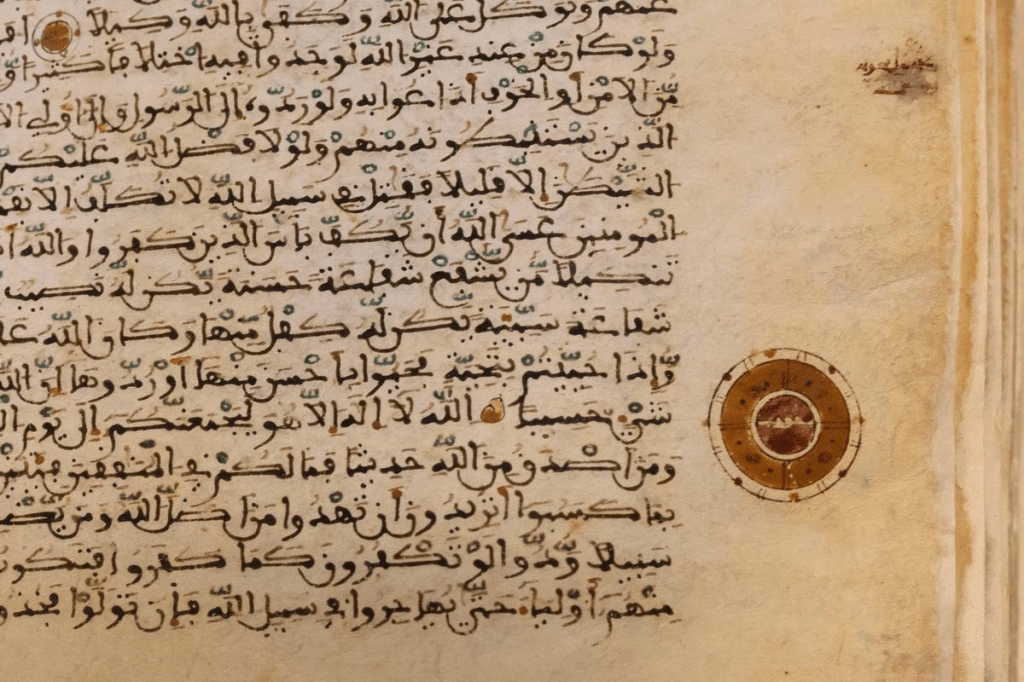 عنهم وتوكل على الله وكفى بالله وكيلا
ولو كان من عند غير الله لوجدوا فيه اختلافا كثيرا
من الامن او الخوف اذاعوا به ولو ردوه الى الرسول والى اولي
الذين يستنبطونه منهم ولولا فضل الله عليكم
الشيطن الا قليلا فقتل في سبيل الله لا تكلف الا
المومنين عسى الله ان يكف باس الذين كفروا والله
تنكيلا من يشفع شفعة حسنة يكن له نصيب
شفعة سيئة يكن له كفل منها وكان الله
واذا حييتم بتحية فحيوا باحسن منها او ردوها ان الله
شيء حسيبا الله لا اله الا هو ليجمعنكم الى يوم
ومن اصدق من الله حديثا فما لكم في المنفقين فئتين
بما كسبوا اتريدون ان تهدوا من اضل الله ومن
سبيلا ودوا لو تكفرون كما كفروا
منهم اولياء حتى يهاجروا في سبيل الله فان تولوا